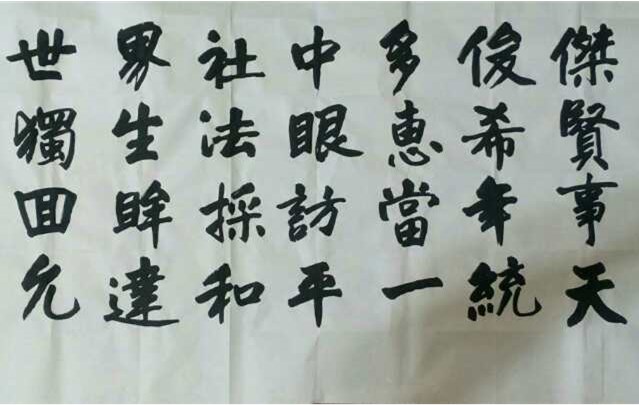 世界社中多俊傑
獨生法眼恵希賢
回眸採訪當年事
允達和平一統天